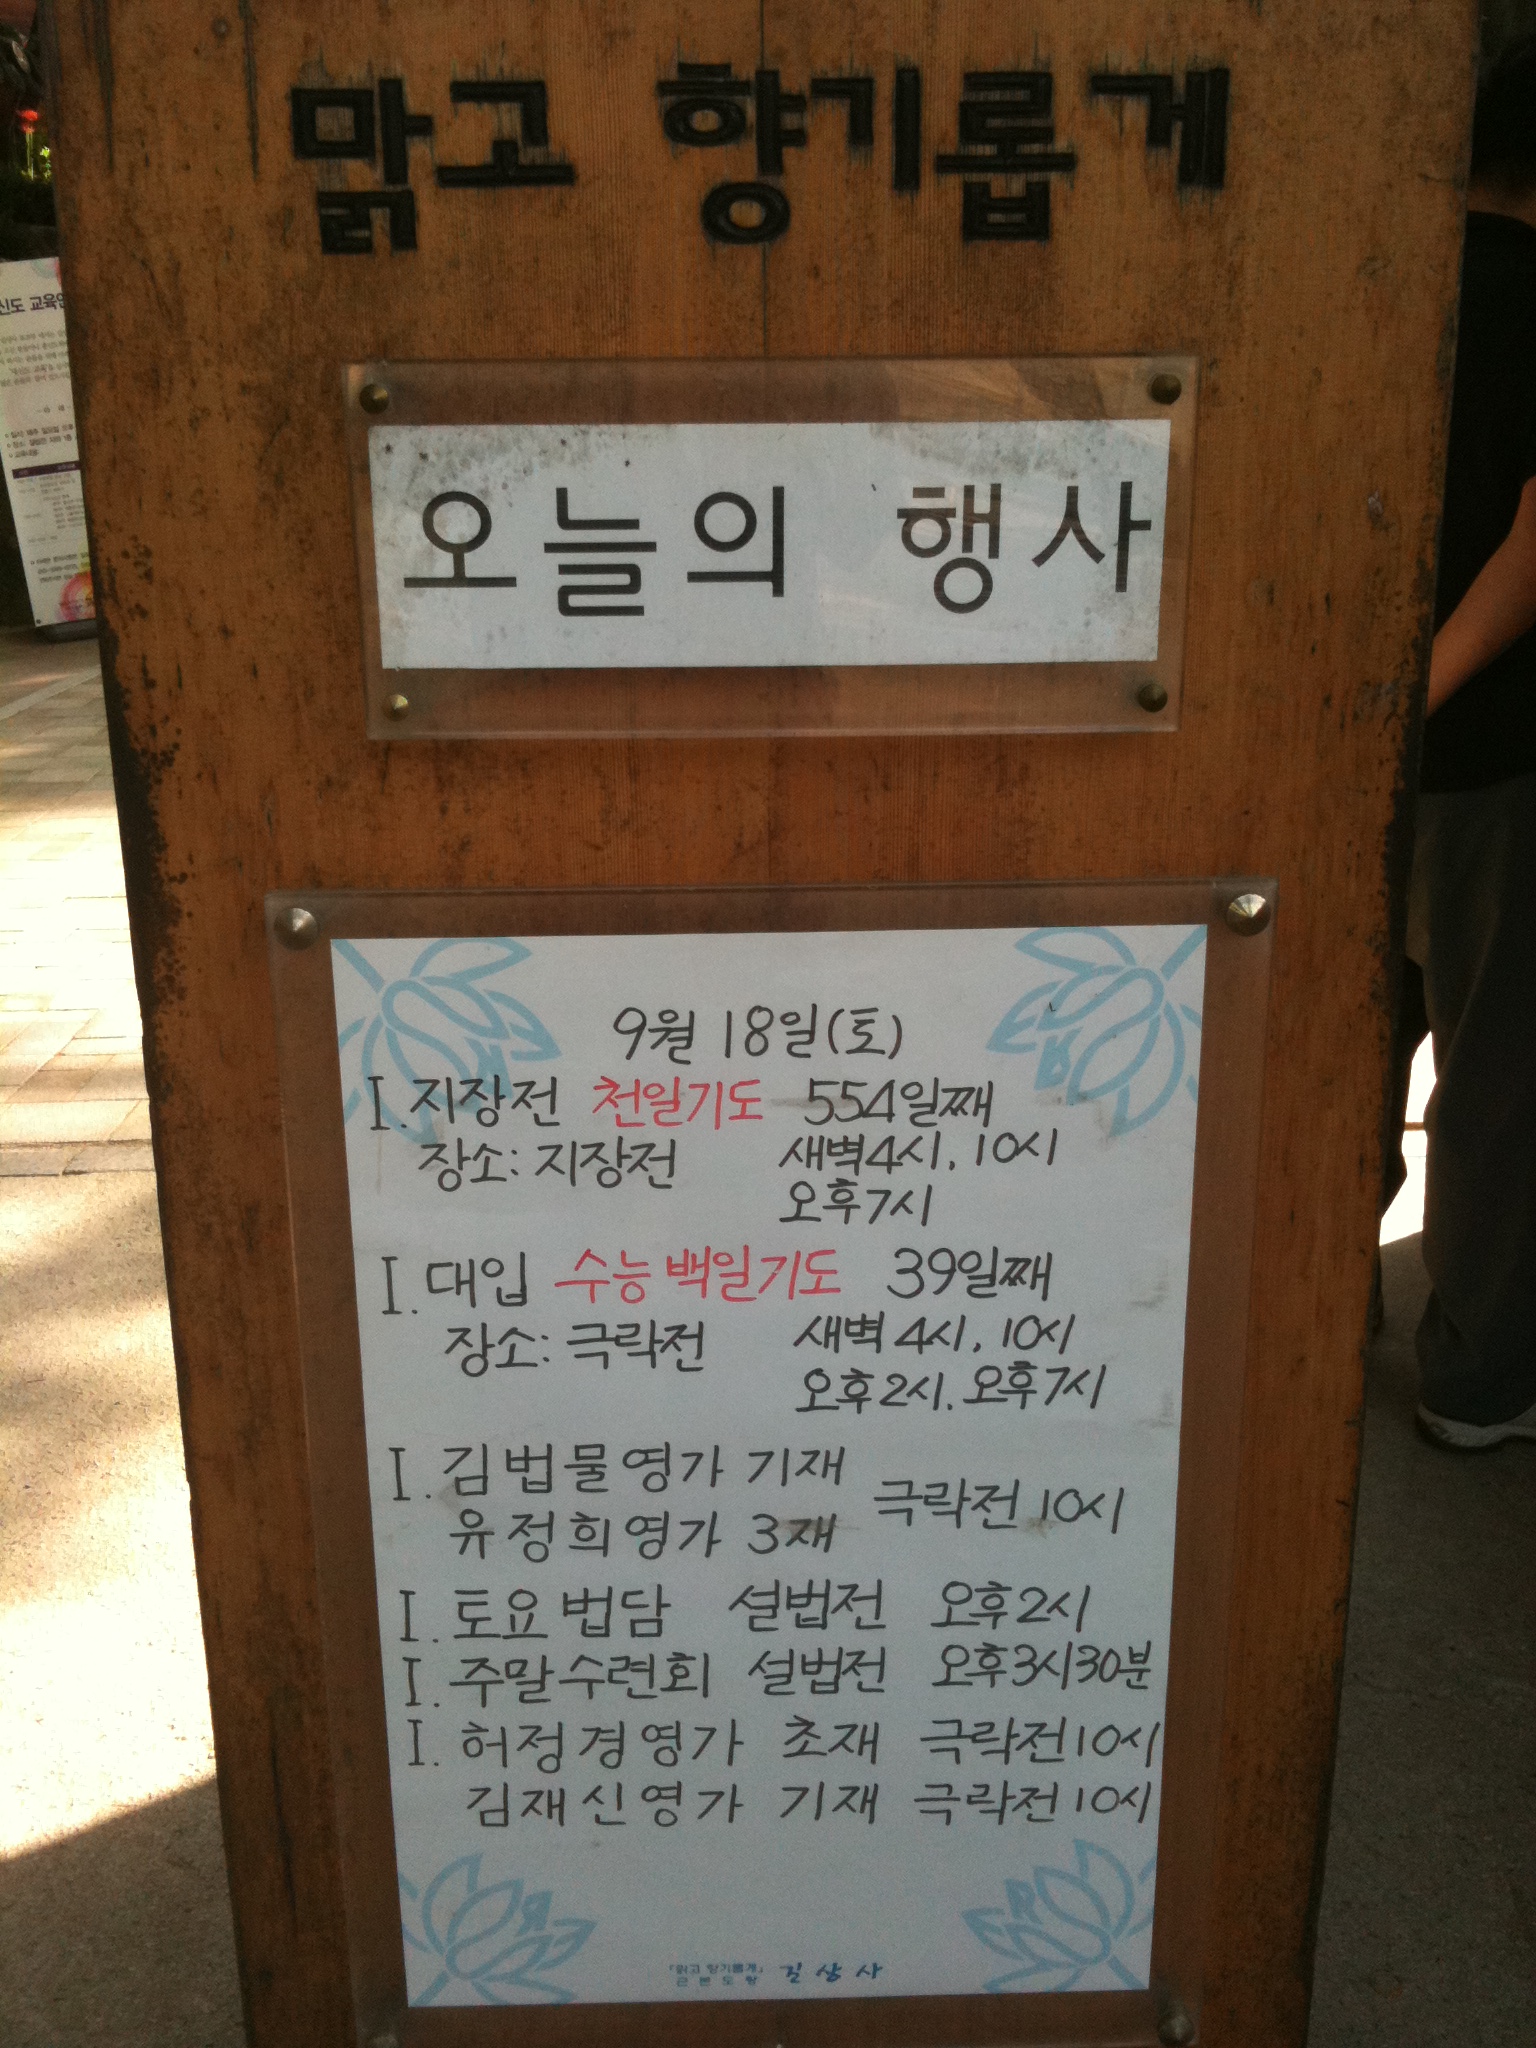 맑고 향기롭게
오늘의 행사
9월 18일(토)
I. 지장전 천일기도 554일째
장소: 지장전 새벽4시, 10시
오후7시
I. 대입 수능백일기도 39일째
장소: 극락전 새벽4시, 10시
오후2시. 오후7시
I. 김법물영가 기재
유정희영가 3재
극락전 10시
I. 토요법담 설법전 오후2시
I. 주말수련회 설법전 오후3시30분
I. 허정경영가 초재 극락전10시
김재신영가 기재 극락전10시
「맑고 향기롭게」
근본도량 길상사
신도 교육